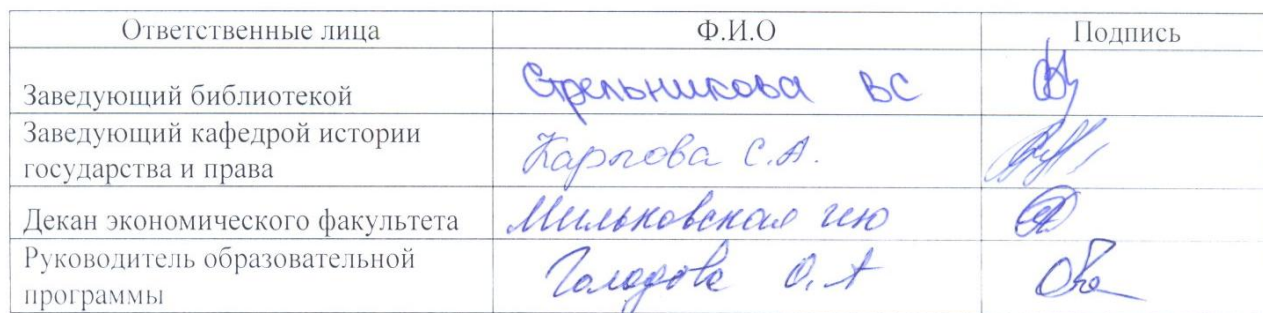 Ответственные лица Ф.И.О Подпись
Заведующий библиотекой Стрельникова ВС
Заведующий кафедрой истории
государства и права Карпова С.А.
Декан экономического факультета Мильковская ию
Руководитель образовательной
программы Голодова О.А